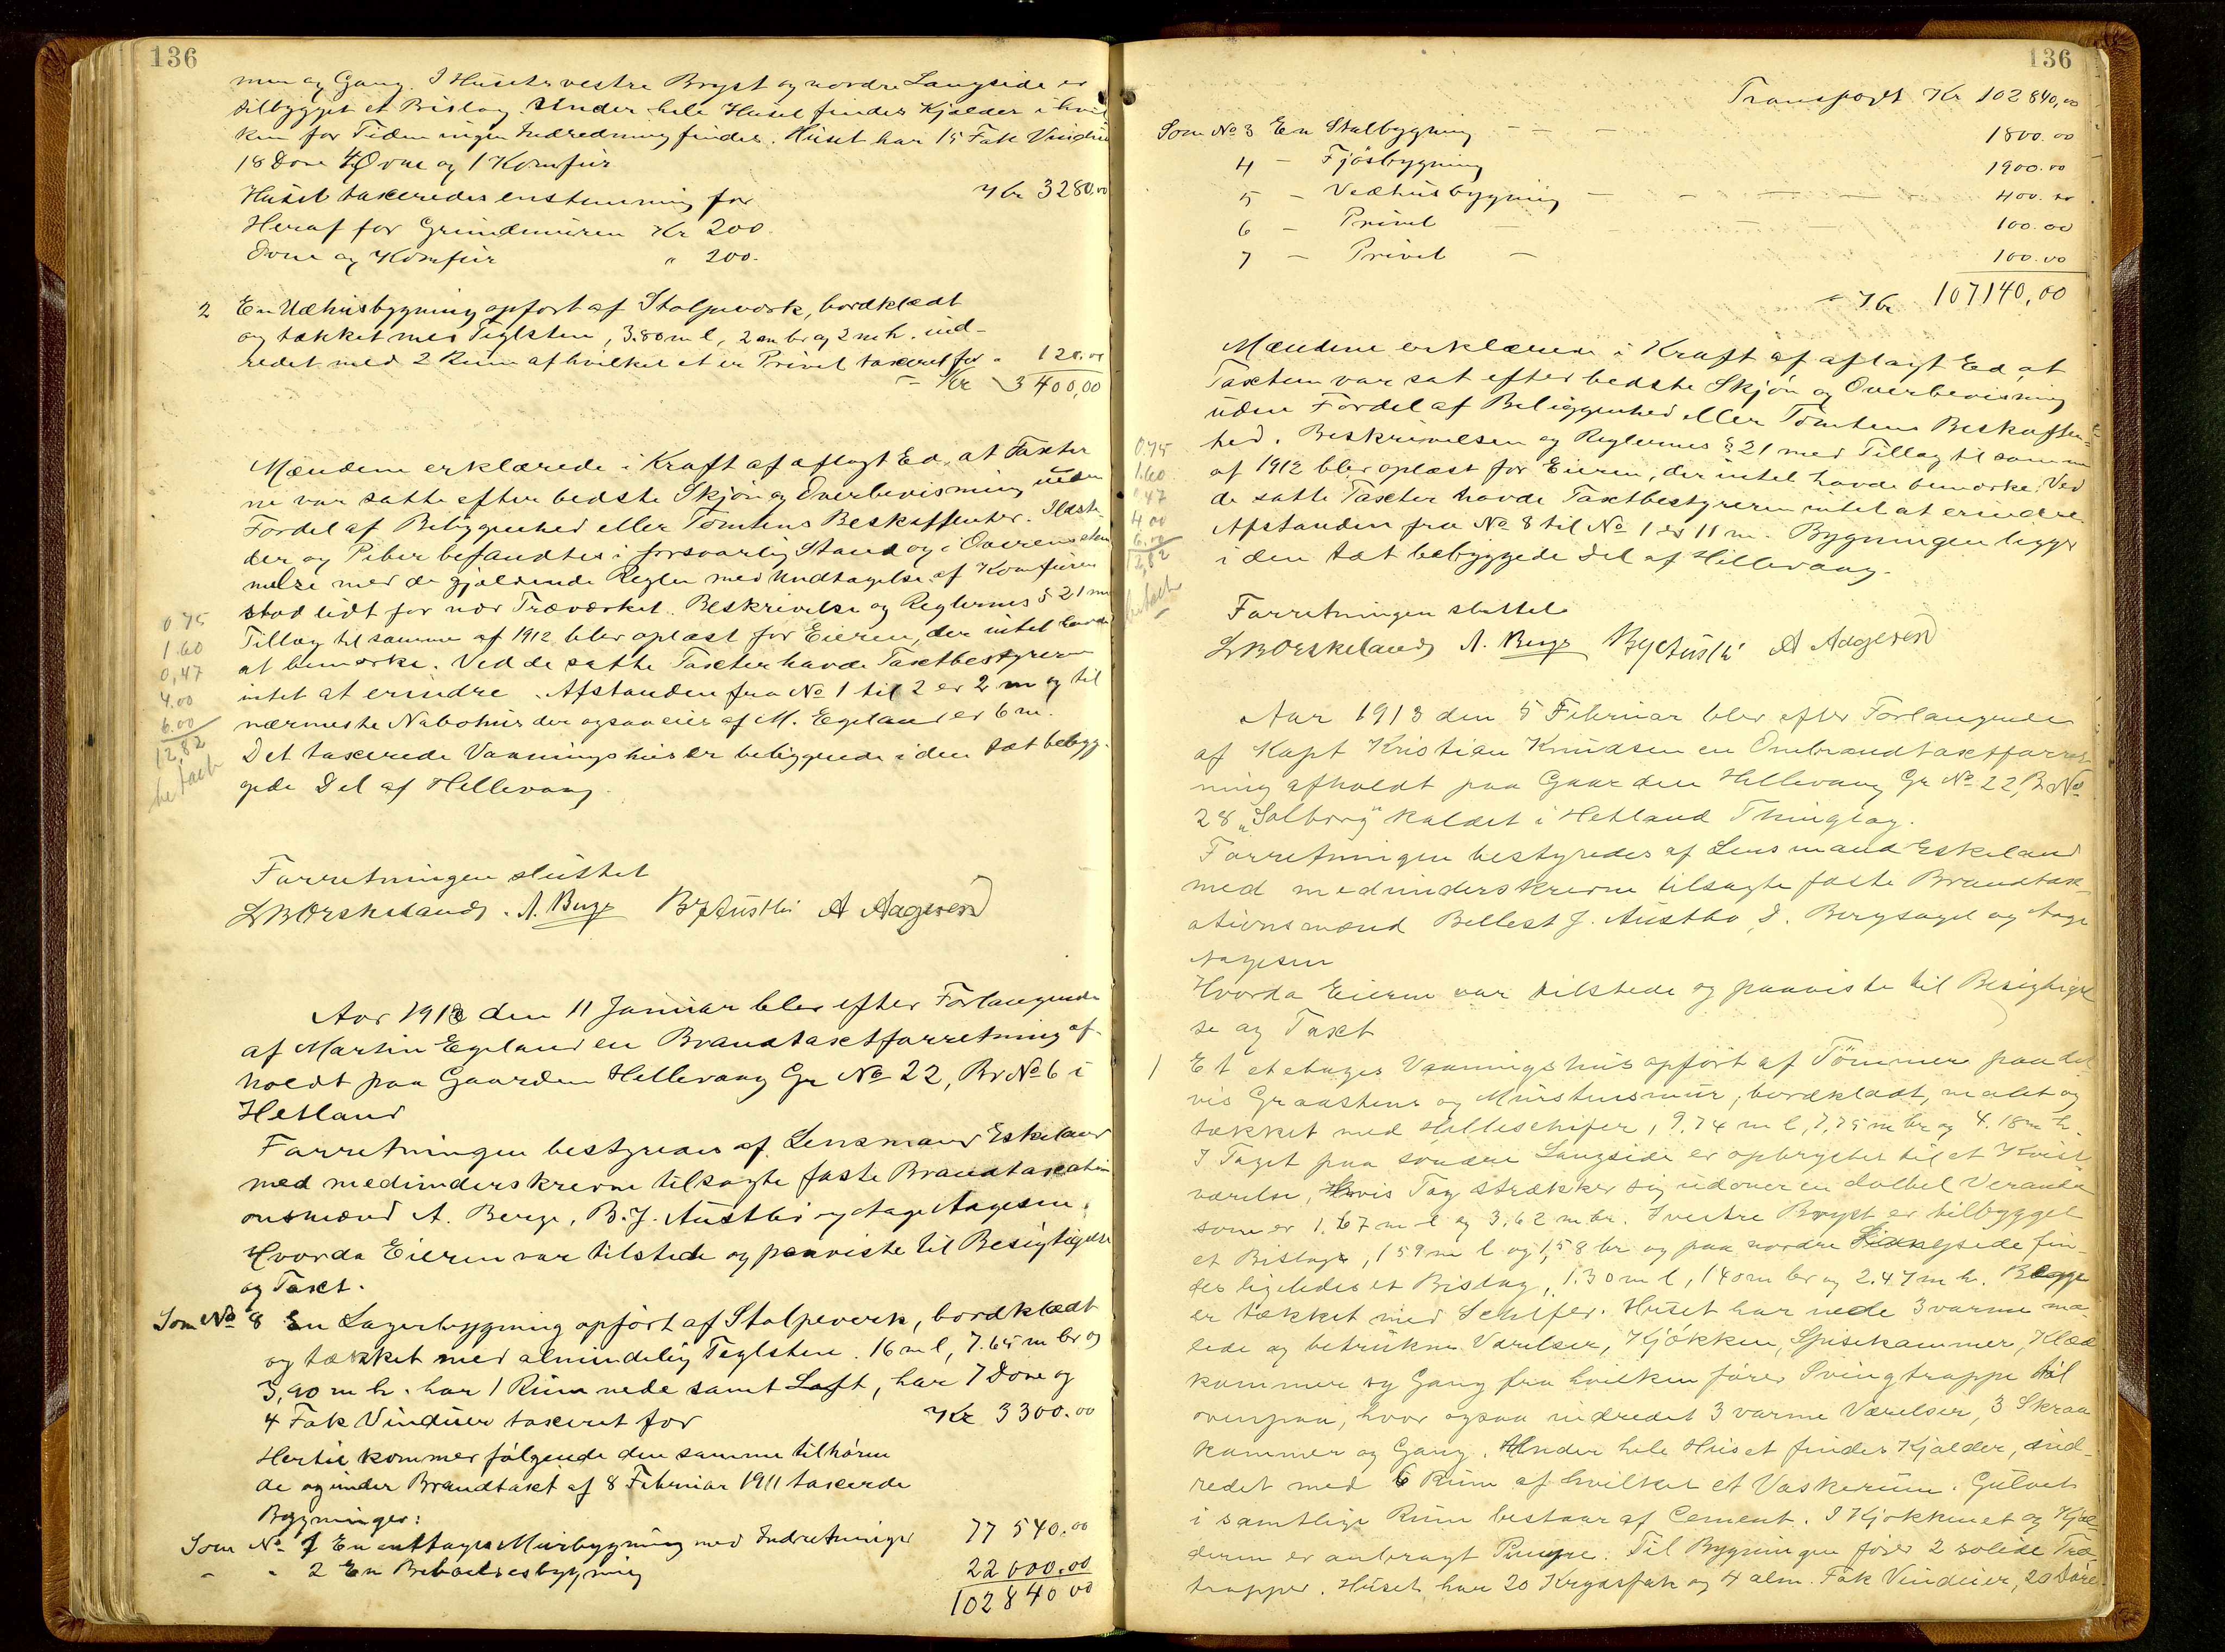 136
mer og Gang. I Husets vestre Bryst og nordre Langside er
tilbygget et Bislag. Under hele Huset findes Kjælder i hvil
ken for Tiden ingen Indredning findes. Huset har 15 Fak Vinduer
18 Døre 4 Ovne og 1 Komfur
Huset taxeredes enstemmig for Kr 3280.00
Heraf for Grundmuren Kr 200.
Ovne og Komfur " 200.
2 En Udhusbygning opført af Stolpeværk, bordklædt
og tækket med Teglsten, 3.80 m l, 2 m br og 2 m h. ind-
redet med 2 Rum af hvilket et er Privet taxeret for " 120.00
Kr 3400,00
Mændene erklærede i Kraft af aflagt Ed, at Taxter
ne var satte efter bedste Skjøn og Overbevisning uden
Fordel af Beliggenhed eller Tomtens Beskaffenhed. Ildste-
der og Piber befandtes i forsvarlig Stand og i Overensstem
melse med de gjældende Regler med Undtagelse af Komfuren
stod lidt for nær Træværket. Beskrivelse og Reglernes § 21 med
Tillæg til samme af 1912 blev oplæst for Eieren, der intet havde
at bemærke. Ved de satte Taxter havde Taxtbestyreren
intet at erindre. Afstanden fra No 1 til 2 er 2 m og til
nærmeste Nabohus der ogsaa eies af M. Egeland er 6 m.
Det taxerede Vaaningshus er beliggende i den tæt bebyg-
gede Del af Hillevaag.
0.75
1.60
0,47
4.00
6.00
12,82
betalt
Forretningen sluttet
L B Orskeland A. Berge B J Austbø A Aagesen
Aar 1913 den 11 Januar blev efter Forlangende
af Martin Egeland en Brandtaxtforretning af-
holdt paa Gaarden Hillevaag Gr No 22, Br No 6 i
Hetland
Forretningen bestyredes af Lensmand Eskeland
med medunderskrevne tilsagte faste Brandtaxati
onsmænd A. Berge, B. J. Austbø og Aage Aagesen.
Hvorda Eieren var tilstede og paaviste til Besigtigelse
og Taxt.
Som No 8 En Lagerbygning opført af Stolpeverk, bordklædt
og tækket med almindelig Teglsten. 16 m l, 7.65 m br og
3,90 m h. har 1 Rum nede samt Loft, har 7 Døre og
4 Fak Vinduer taxeret for Kr 3300.00
Hertil kommer følgende den samme tilhøren
de og under Brandtaxt af 8 Februar 1911 taxerede
Bygninger:
Som No 1 En enetages Murbygning med Indretninger 77 540.00
" " 2 En Beboelsesbygning 22 000.00
102 840 00
136
Transport Kr 102 840,00
Som No 3 En Stalbygning 1800.00
4 - Fjøsbygning 1900.00
5 - Vedhusbygning 400.00
6 - Privet 100.00
7 - Privet 100.00
Kr 107140,00
Mændene erklærede i Kraft af aflagt Ed, at
Taxten var sat efter bedste Skjøn og Overbevisning
uden Fordel af Beliggenhed eller Tomtens Beskaffen-
hed. Beskrivelsen og Reglernes § 21 med Tillæg til samme
af 1912 blev oplæst for Eieren, der intet havde bemærke. Ved
de satte Taxter havde Taxtbestyreren intet at erindre.
Afstanden fra No 8 til No 1 er 11 m. Bygningen ligger
i den tæt bebyggede Del af Hillevaag.
0.75
1.60
0,47
4.00
6.00
12,82
betalt
Forretningen sluttet
L B Orskeland A. Berge B J Austbø A Aagesen
Aar 1913 den 5 Februar blev efter Forlangende
af Kapt Kristian Knudsen en Ombrandtaxtforret
ning afholdt paa Gaarden Hillevaag Gr No 22, B No
28 "Solborg" kaldet i Hetland Thinglag.
Forretningen bestyredes af Lensmand Eskeland
med medunderskrevne tilsagte faste Brandtax
ationsmænd Bellest J. Austbø, D. Bergsagel og Aage
Aagesen
Hvorda Eieren var tilstede og paaviste til Besigtigel
se og Taxt
1 Et etetages Vaaningshus opført af Tømmer paa del
vis Graastens og Murstensmur, bordklædt, malet og
tækket med Helleschifer, 9.74 m l, 7,75 m br og 4.18 m h.
I Taget paa søndre Langside er opbrygtet til et Kvist
værelse, hvis Tag strækker sig udover en dobbel Veranda
som er 1.67 m l og 3.62 m br. I vestre Bryst er tilbygget
et Bislag, 1 59 m l og 1,58 br og paa nordre Langside fin-
des ligeledes et Bislag, 1.30 m l, 1 40 m br og 2.47 m h. Begge
er tækket med Schifer. Huset har nede 3 varme ma
lede og betrukne Værelser, Kjøkken, Spisekammer, Klæd
kammer og Gang fra hvilken fører Svingtrappe til
ovenpaa, hvor ogsaa indredet 3 varme Værelser, 3 Skraa
kammer og Gang. Under hele Huset findes Kjælder, ind-
redet med 6 Rum af hvilket et Vaskerum. Gulvet
i samtlige Rum bestaar af Cement. I Kjøkkenet og Kjæl-
deren er anbragt Pumpe. Til Bygningen fører 2 solide Træ-
trapper. Huset har 20 Krydsfak og 4 alm. Fak Vinduer, 20 Døre